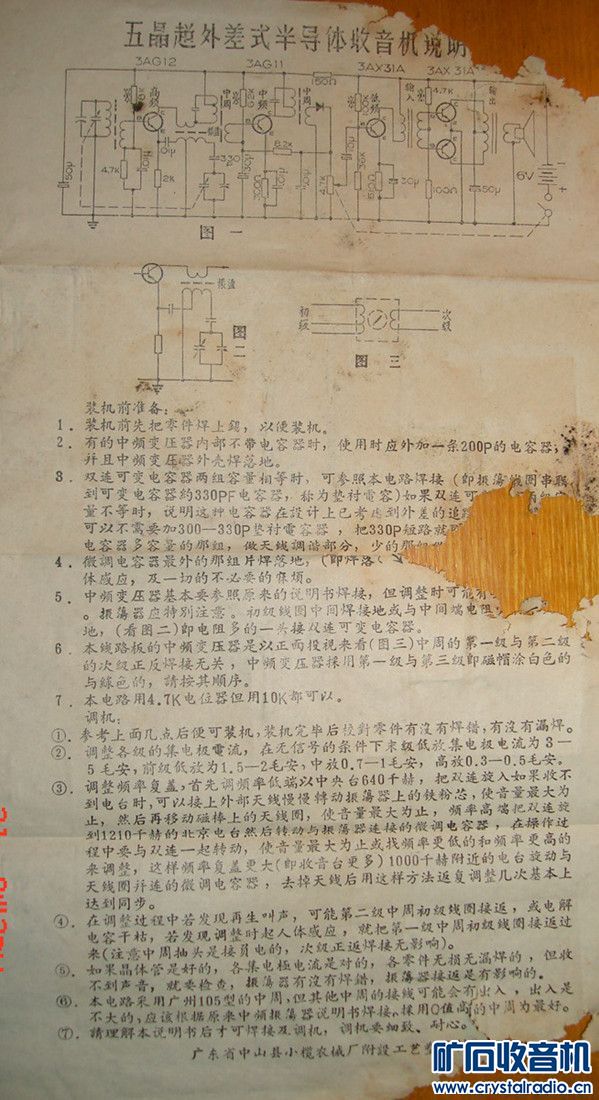 五晶超外差式半导体收音机说明
3AG12 3AG11 3AX31A 3AX 31A
高频 中周 中频 中周 50Ω 低频 输入 4.7K 输出
振盪
4.7K 2K 330 8.2K 4.7K 30μ 100Ω 50μ 6V
50μ
图一
振盪
图二
初级 次级
图三
装机前准备:
1. 装机前先把零件焊上錫,以便装机。
2. 有的中频变压器内部不带电容器时,使用时应外加一条200P的电容器,
并且中频变压器外壳焊落地。
3. 双连可变电容器两组容量相等时,可参照本电路焊接(即振荡线圈串联
到可变电容器约330PF电容器,称为垫衬電容)如果双连可
量不等时,说明这种电容器在设计上已考虑到外差的追
可以不需要加300—330P垫衬電容器,把330P短路就
电容器多容量的那组,做天线調谐部分,少的那组
4. 微調电容器最外的那组片焊落地,(即焊落
体感应,及一切的不必要的麻烦。
5. 中频变压器基本要参照原来的说明书焊接,但调整时可能有
。振荡器应特别注意。初级线圈中间焊接地或与中间端电阻
地,(看图二)即电阻多的一头接双连可变电容器。
6. 本线路板的中频变压器是以正面投视来看(图三)中周的第一级与第二级
的次级正反焊接无关,中频变压器採用第一级与第三级即磁帽涂白色的
与緑色的,請按其順序。
7. 本电路用4.7K电位器但用10K都可以。
调机:
①. 参考上面几点后便可装机,装机完毕后校對零件有沒有焊错,有沒有漏焊。
②. 調整各级的集电极電流,在无信号的条件下末级低放集电极电流为3—
5毛安,前级低放为1.5—2毛安,中放0.7—1毛安,高放0.3—0.5毛安。
③. 调整频率复盖,首先调频率低端以中央台640千赫,把双连旋入如果收不
到电台时,可以接上外部天线慢慢轉动振荡器上的铁粉芯,使音量最大为
止,然后再移动磁棒上的天线圈,使音量最大为止,频率高端把双连旋
到1210千赫的北京电台然后转动与振荡器连接的微调电容器,在操作过
程中要与双连一起转动,使音量最大为止或找频率更低的和频率更高的
来调整,这样频率复盖更大(即收音台更多)1000千赫附近的电台旋动与
天线圈并连的微调电容器,去掉天线后用这样方法返复调整几次基本上
达到同步。
④. 在调整过程中若发现再生叫声,可能第二级中周初级线圈接返,或电解
电容干枯,若发现调整时起人体感应,就把第一级中周初级线圈接返过
来(注意中周抽头是接負电的,次级正返焊接无影响)。
⑤. 如果晶体管是好的,各集电極电流是对的,各零件无损无漏焊的,但收
不到声音,就要检查,振荡器有沒有焊錯,振盪器接返是有影响的。
⑥. 本电路采用广州105型的中周,但其他中周的接线可能会有出入,出入是
不大的,应该根据原来中频振荡器说明书焊接,採用Q值高的中周为最好。
⑦. 請理解本说明书后才可焊接及調机,调机要细致、耐心。
广东省中山县小榄农械厂附設工艺
矿石收音机
www.crystalradio.cn